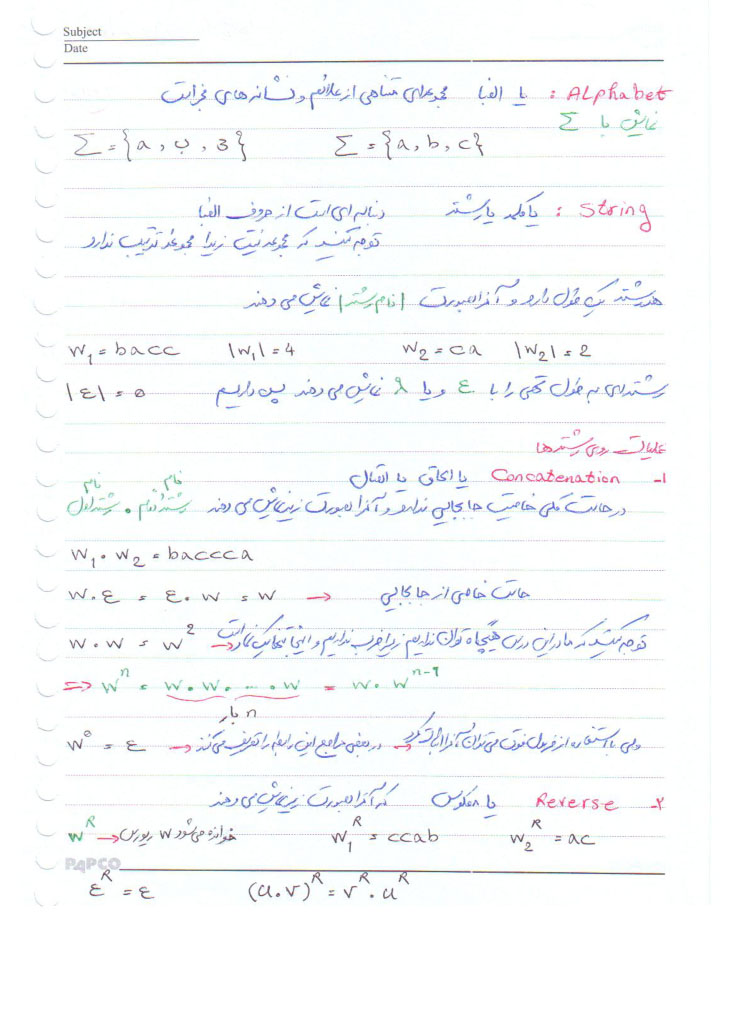 Subject
Date
Alphabet : یا الفبا مجموعه‌ای متناهی از علائم و نشانه‌های مجزاست
نمایش با Σ
Σ = {a , ب , 3} Σ = {a , b , c}
String : یا کلمه یا رشته دنباله‌ای است از حروف الفبا
توجه کنید که مجموعه نیست زیرا مجموعه ترتیب ندارد
هر رشته یک طول دارد و آنرا بصورت |نام رشته| نمایش می دهند
w₁ = bacc |w₁| = 4 w₂ = ca |w₂| = 2
رشته‌ای به طول تهی را با ε و یا λ نمایش می دهند پس داریم |ε| = 0
عملیات روی رشته‌ها
۱- Concatenation یا الحاق یا اتصال
در حالت کلی خاصیت جابجایی ندارد و آنرا بصورت زیر نمایش می دهند نام رشته دوم . نام رشته اول
w₁ . w₂ = baccca
w . ε = ε . w = w → حالت خاصی از جابجایی
w . w = w² → توجه کنید که ما در این درس هیچگاه توان نداریم زیرا ضرب نداریم و اینجا تنها یک نماد است
⇒ wⁿ = w . w . … . w = w . wⁿ⁻¹
n بار
w⁰ = ε → در بعضی مراجع این رابطه را تعریف می کنند → ولی با استفاده از فرمول فوق می توان آنرا اثبات کرد
۲- Reverse یا معکوس که آنرا بصورت زیر نمایش می دهند
wᴿ → خوانده می شود w ریورس w₁ᴿ = ccab w₂ᴿ = ac
PAPCO
εᴿ = ε (u . v)ᴿ = vᴿ . uᴿ